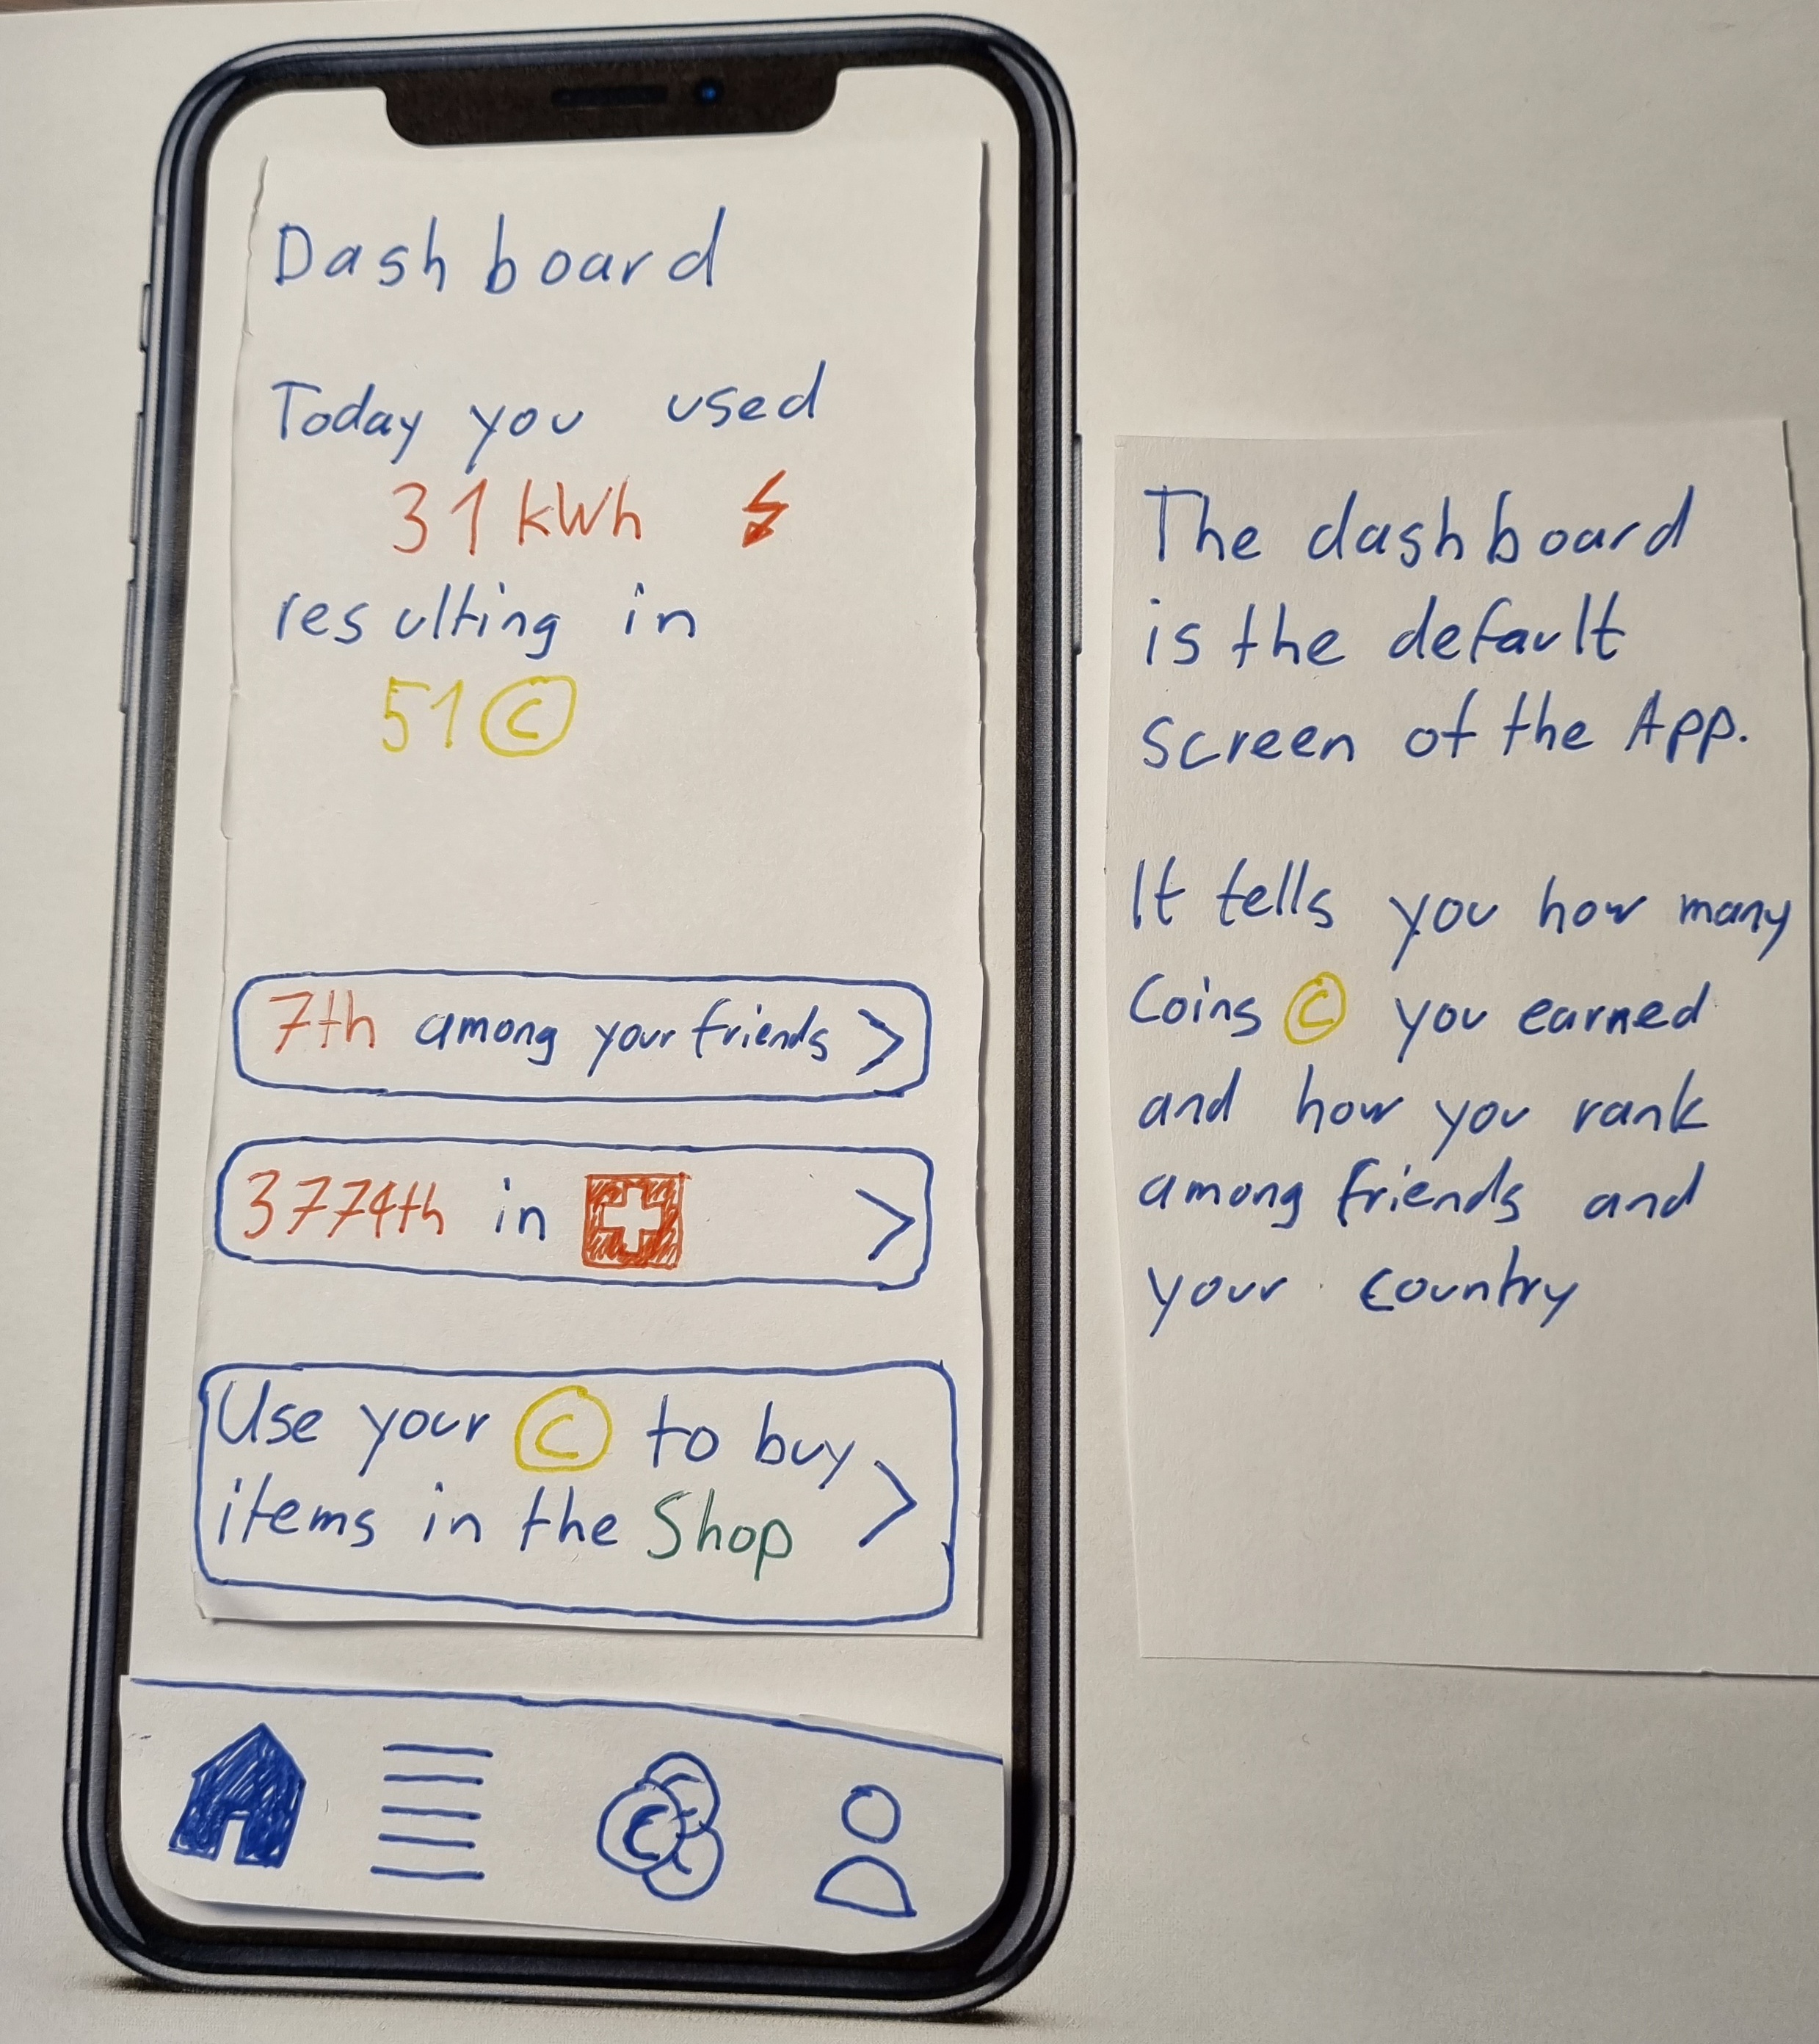 Dashboard
Today you used
31 kWh
resulting in
51 C
7th among your friends >
3774th in >
Use your C to buy
items in the Shop >
C
The dashboard
is the default
screen of the App.
It tells you how many
Coins C you earned
and how you rank
among friends and
your country